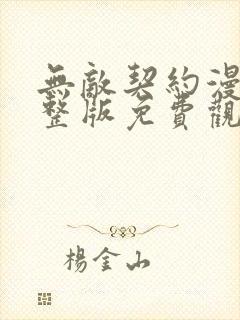 無敵契約漫
整版免費觀
楊金山